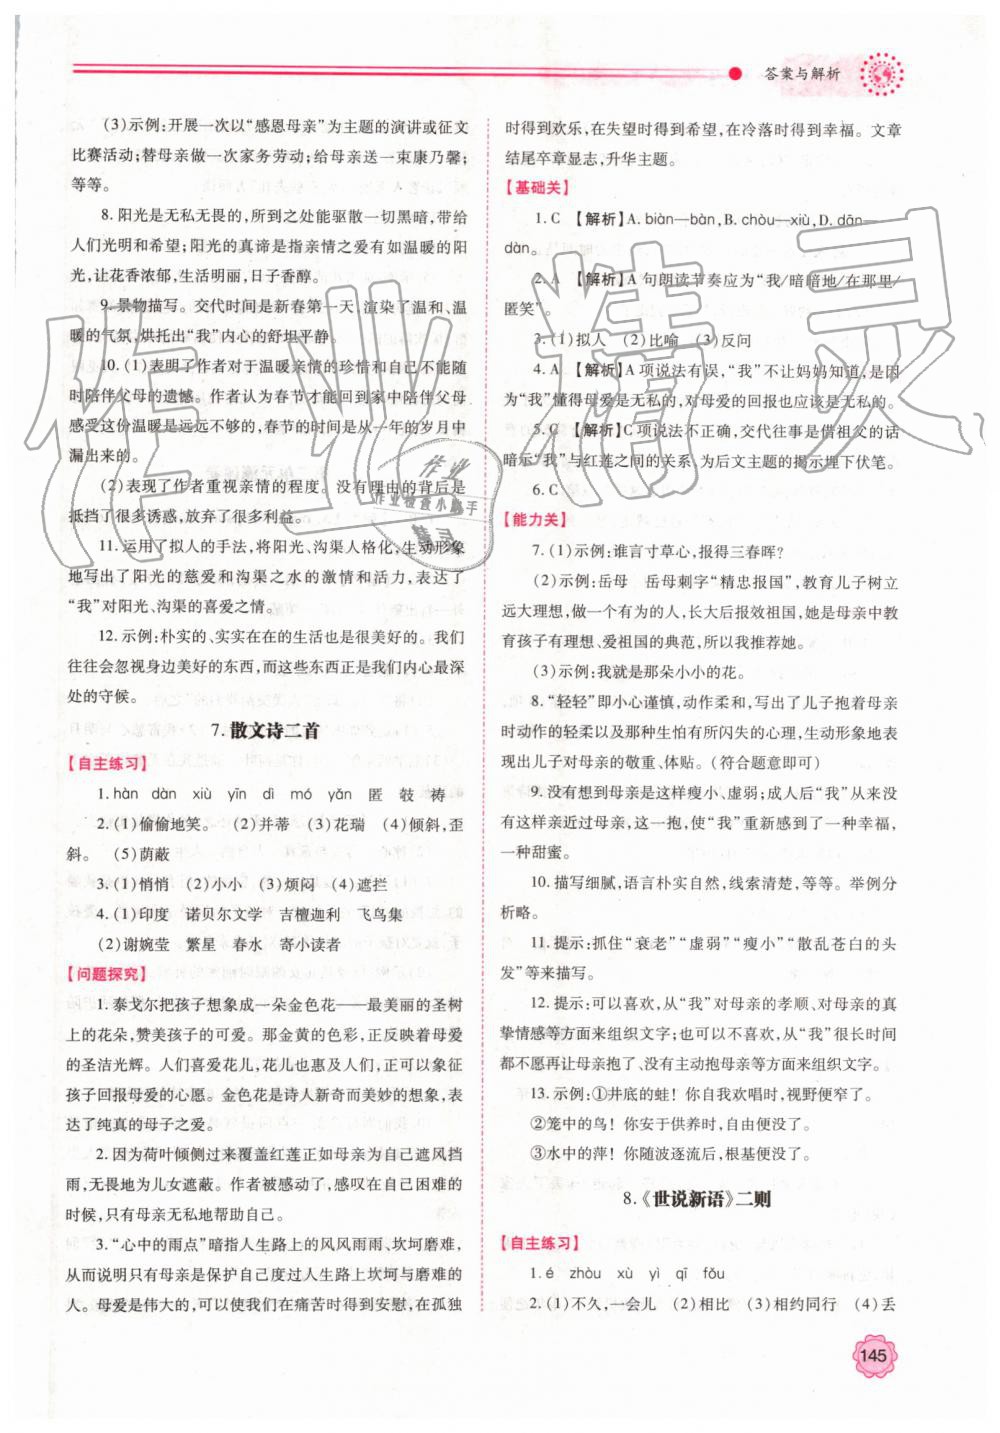 答案与解析
(3)示例:开展一次以“感恩母亲”为主题的演讲或征文
比赛活动;替母亲做一次家务劳动;给母亲送一束康乃馨;
等等。
8. 阳光是无私无畏的,所到之处能驱散一切黑暗,带给
人们光明和希望;阳光的真谛是指亲情之爱有如温暖的阳
光,让花香浓郁,生活明丽,日子香醇。
9. 景物描写。交代时间是新春第一天,渲染了温和、温
暖的气氛,烘托出“我”内心的舒坦平静。
10. (1)表明了作者对于温暖亲情的珍惜和自己不能随
时陪伴父母的遗憾。作者认为春节才能回到家中陪伴父母
感受这份温暖是远远不够的,春节的时间是从一年的岁月中
漏出来的。
(2)表现了作者重视亲情的程度。没有理由的背后是
抵挡了很多诱惑,放弃了很多利益。
11. 运用了拟人的手法,将阳光、沟渠人格化,生动形象
地写出了阳光的慈爱和沟渠之水的激情和活力,表达了
“我”对阳光、沟渠的喜爱之情。
12. 示例:朴实的、实实在在的生活也是很美好的。我们
往往会忽视身边美好的东西,而这些东西正是我们内心最深
处的守候。
7. 散文诗二首
【自主练习】
1. hàn dàn xiù yīn dì mó yǎn 匿 攲 祷
2. (1)偷偷地笑。 (2)并蒂 (3)花瑞 (4)倾斜,歪
斜。 (5)荫蔽
3. (1)悄悄 (2)小小 (3)烦闷 (4)遮拦
4. (1)印度 诺贝尔文学 吉檀迦利 飞鸟集
(2)谢婉莹 繁星 春水 寄小读者
【问题探究】
1. 泰戈尔把孩子想象成一朵金色花——最美丽的圣树
上的花朵,赞美孩子的可爱。那金黄的色彩,正反映着母爱
的圣洁光辉。人们喜爱花儿,花儿也惠及人们,正可以象征
孩子回报母爱的心愿。金色花是诗人新奇而美妙的想象,表
达了纯真的母子之爱。
2. 因为荷叶倾侧过来覆盖红莲正如母亲为自己遮风挡
雨,无畏地为儿女遮蔽。作者被感动了,感叹自己在困难的
时候,只有母亲无私地帮助自己。
3. “心中的雨点”暗指人生路上的风风雨雨、坎坷磨难,
从而说明母亲是保护自己度过人生路上坎坷与磨难的
人。母爱是伟大的,可以使我们在痛苦时得到安慰,在孤独
时得到欢乐,在失望时得到希望,在冷落时得到幸福。文章
结尾卒章显志,升华主题。
【基础关】
1. C 【解析】A. biàn—bàn, B. chòu—xiù, D. dān—
dàn。
2. A 【解析】A 句朗读节奏应为“我/暗暗地/在那里/
匿笑”。
3. (1)拟人 (2)比喻 (3)反问
4. A 【解析】A 项说法有误,“我”不让妈妈知道,是因
为“我”懂得母爱是无私的,对母爱的回报也应该是无私的。
5. C 【解析】C 项说法不正确,交代往事是借祖父的话
暗示“我”与红莲之间的关系,为后文主题的揭示埋下伏笔。
6. C
【能力关】
7. (1)示例:谁言寸草心,报得三春晖?
(2)示例:岳母 岳母刺字“精忠报国”,教育儿子树立
远大理想,做一个有志的人,长大后报效祖国,她是母亲中教
育孩子有理想、爱祖国的典范,所以我推荐她。
(3)示例:我就是那朵小小的花。
8. “轻轻”即小心谨慎,动作柔和,写出了儿子抱着母亲
时动作的轻柔以及那种生怕有所闪失的心理,生动形象地表
现出儿子对母亲的敬重、体贴。(符合题意即可)
9. 没有想到母亲是这样瘦小、虚弱;成人后“我”从来没
有这样亲近过母亲,这一抱,使“我”重新感到了一种幸福,
一种甜蜜。
10. 描写细腻,语言朴实自然,线索清楚,等等。举例分
析略。
11. 提示:抓住“衰老”“虚弱”“瘦小”“散乱苍白的头
发”等来描写。
12. 提示:可以喜欢,从“我”对母亲的孝顺、对母亲的真
挚情感等方面来组织文字;也可以不喜欢,从“我”很长时间
都不愿再让母亲抱了、没有主动抱母亲等方面来组织文字。
13. 示例:①井底的蛙!你自我欢唱时,视野便窄了。
②笼中的鸟!你安于供养时,自由便没了。
③水中的萍!你随波逐流后,根基便没了。
8. 《世说新语》二则
【自主练习】
1. é zhòu xù yì qī fǒu
2. (1)不久,一会儿 (2)相比 (3)相约同行 (4)丢
145
作业精灵
作业
作业检查小助手
精灵